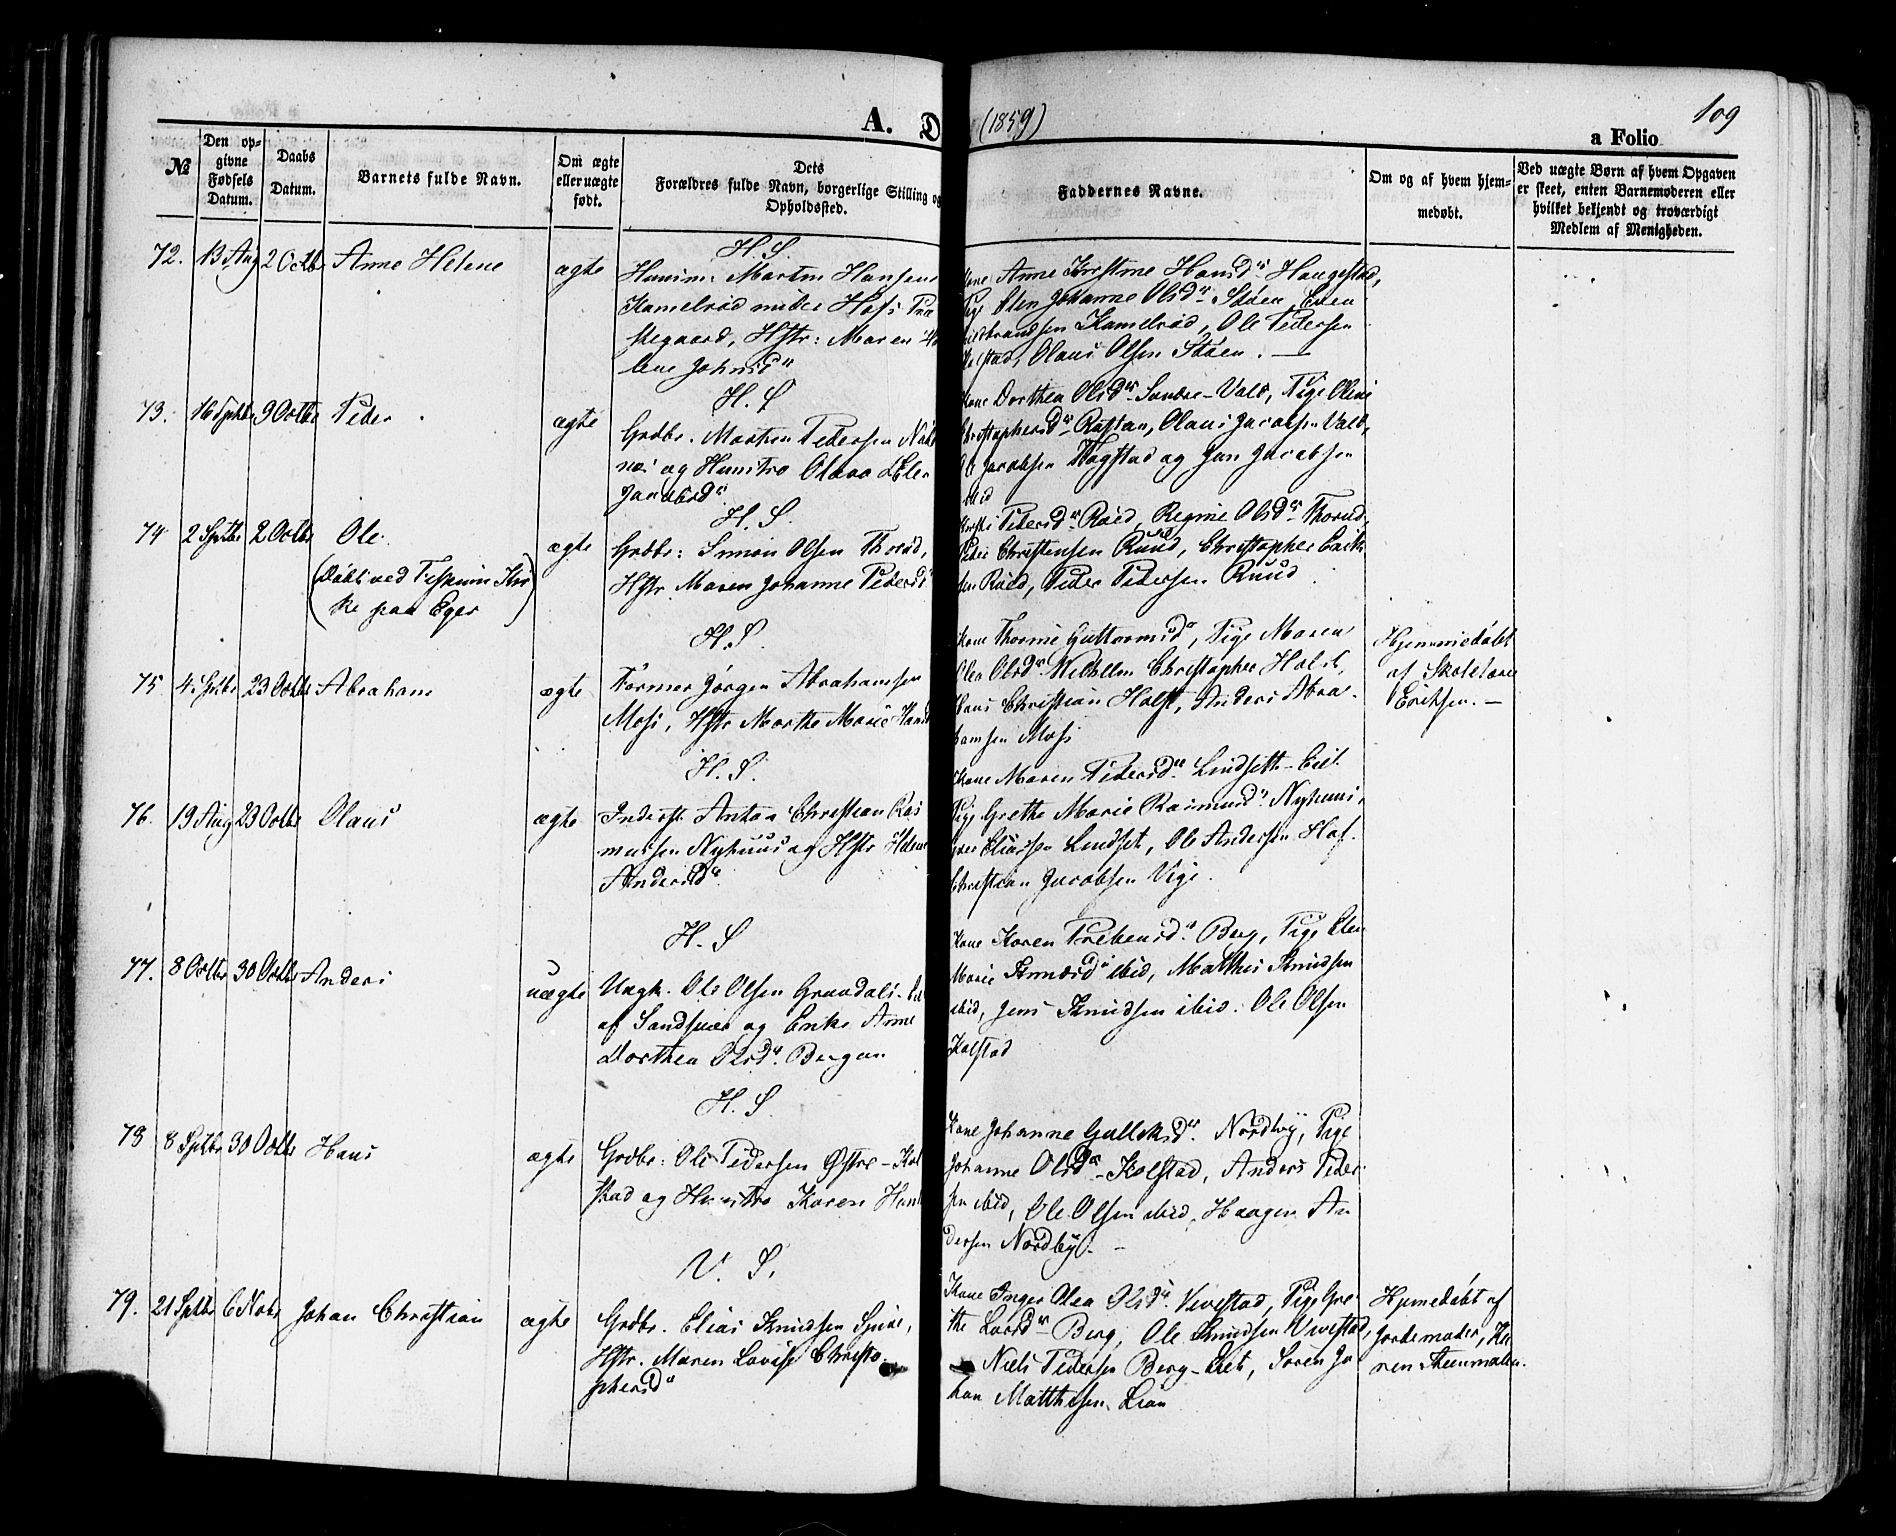 A. D (1859) a Folio 109
№
Den op-
givne
Fødsels
Datum.
Daabs
Datum.
Barnets fulde Navn.
Om ægte
eller uægte
født.
Dets
Forældres fulde Navn, borgerlige Stilling og
Opholdssted.
Faddernes Navne.
Om og af hvem hjem-
medøbt.
Ved uægte Børn af hvem Opgaven
er skeet, enten Barnemoderen eller
hvilket bekjendt og troværdigt
Medlem af Menigheden.
H. S.
72. 13 Aug 2 Octbr Anne Helene ægte
Huusm. Martin Hansen
Kamelrød under Hofs Præ
stegaard, Hstr: Maren
lene Johnsd
Anne Kirstine Hansd Haugestad,
Johanne Olsd Støen, Even
Kamelrød, Ole Pedersen
Olaus Olsen Støen. —
H. S
73. 16 Septbr 9 Octbr Peder ægte
Grdbr. Morten Pedersen
og Hustro Olava Elen
Jacobsd
Dorthea Olsd Søndre-Vald, Pige Oline
Christophersd Røstan, Olaus Jacobsen Vald,
Ole Jacobsen Fogstad og Jan Jacobsen
ibid
H. S.
74 2 Septbr 2 Octbr Ole ægte
(Døbt ved Fiskum Kir
ke paa Eger)
Grdbr: Simon Olsen Thorud,
Hstr Maren Johanne Pedersd
Pedersd Røed, Regine Olsd Thorud,
Peder Christensen Ruud, Christopher Erik
sen Røed, Peder Pedersen Ruud
H. S.
75 4 Septbr 23 Octbr Abraham ægte
Former Jørgen Abrahamsen
Moss, Hstr Marthe Marie Hansd
Kone Thorine Guttormsd, Pige Maren
Olea Olsd Wilhelm Christopher Holst,
Hans Christian Holst, Anders Abra-
hamsen Moss
Hjemmedøbt
af Skolelærer
Eriksen. —
H. S.
76. 19 Aug 23 Octbr Olaus ægte
Inderst Anton Christian Ras
mussen Nyhuus og Hstr Helene
Andersd
Kone Maren Pedersd Lindset-Eiet
Pige Grethe Marie Rasmusd Nyhuus,
Iver Eliassen Lindset, Ole Andersen Hof.
Christian Jacobsen Vige.
H. S
77. 8 Octbr 30 Octbr Anders uægte
Ungk. Ole Olsen Gravdals-Eiet
af Sandsvær og Enke Anne
Dorthea Olsd Bergan
Kone Karen Prebensd Berg, Pige Elen
Marie Knudsd ibid, Mathis Knudsen
ibid, Jens Knudsen ibid. Ole Olsen
Kolstad
H. S.
78 8 Septbr 30 Octbr Hans ægte
Grdbr: Ole Pedersen Østre-Kol
stad og Hustro Karen Hans
Kone Johanne Gulliksd Nordby, Pige
Johanne Olsd Kolstad, Anders Peder-
sen ibid, Ole Olsen ibid, Haagen An
dersen Nordby. —
V. S.
79. 21 Septbr 6 Novbr Johan Christian ægte
Grdbr. Elias Knudsen Sjue,
Hstr. Maren Lovise Christo-
phersd
Kone Inger Olea Olsd Vivestad, Pige Gre-
the Larsd Berg, Ole Knudsen Vivestad,
Niels Pedersen Berg-Eiet, Søren Jo
han Matthisen Lian
Hjemedøbt af
Jordemoder, Ka
ren Steensmalen.